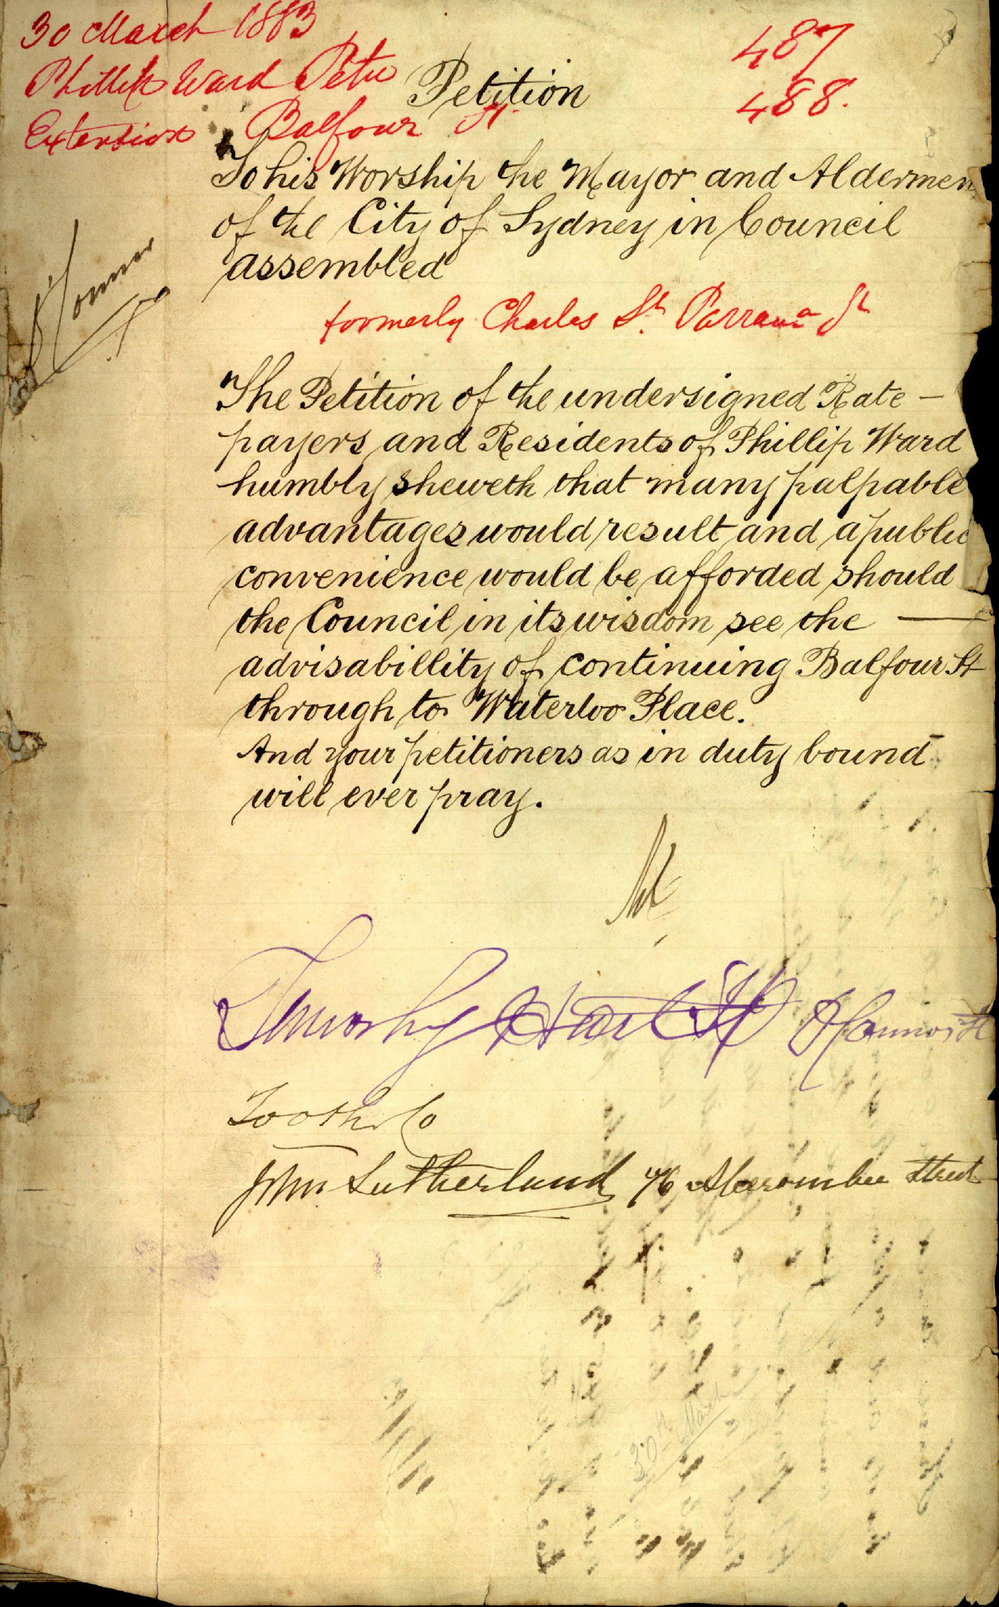 30 March 1883
487
Phillip Ward Petn
488.
Petition
Extension Balfour St.
To his Worship the Mayor and Aldermen
of the City of Sydney in Council
assembled
formerly Charles St. Parrama St
The Petition of the undersigned Rate -
payers and Residents of Phillip Ward
humbly sheweth that many palpable
advantages would result and a public
convenience would be afforded should
the Council in its wisdom see the —
advisabillity of continuing Balfour St
through to Waterloo Place.
And your petitioners as in duty bound
will ever pray.
Timothy Hart
Tooth & Co
John Sutherland 76 Abercrombie Street
30th March